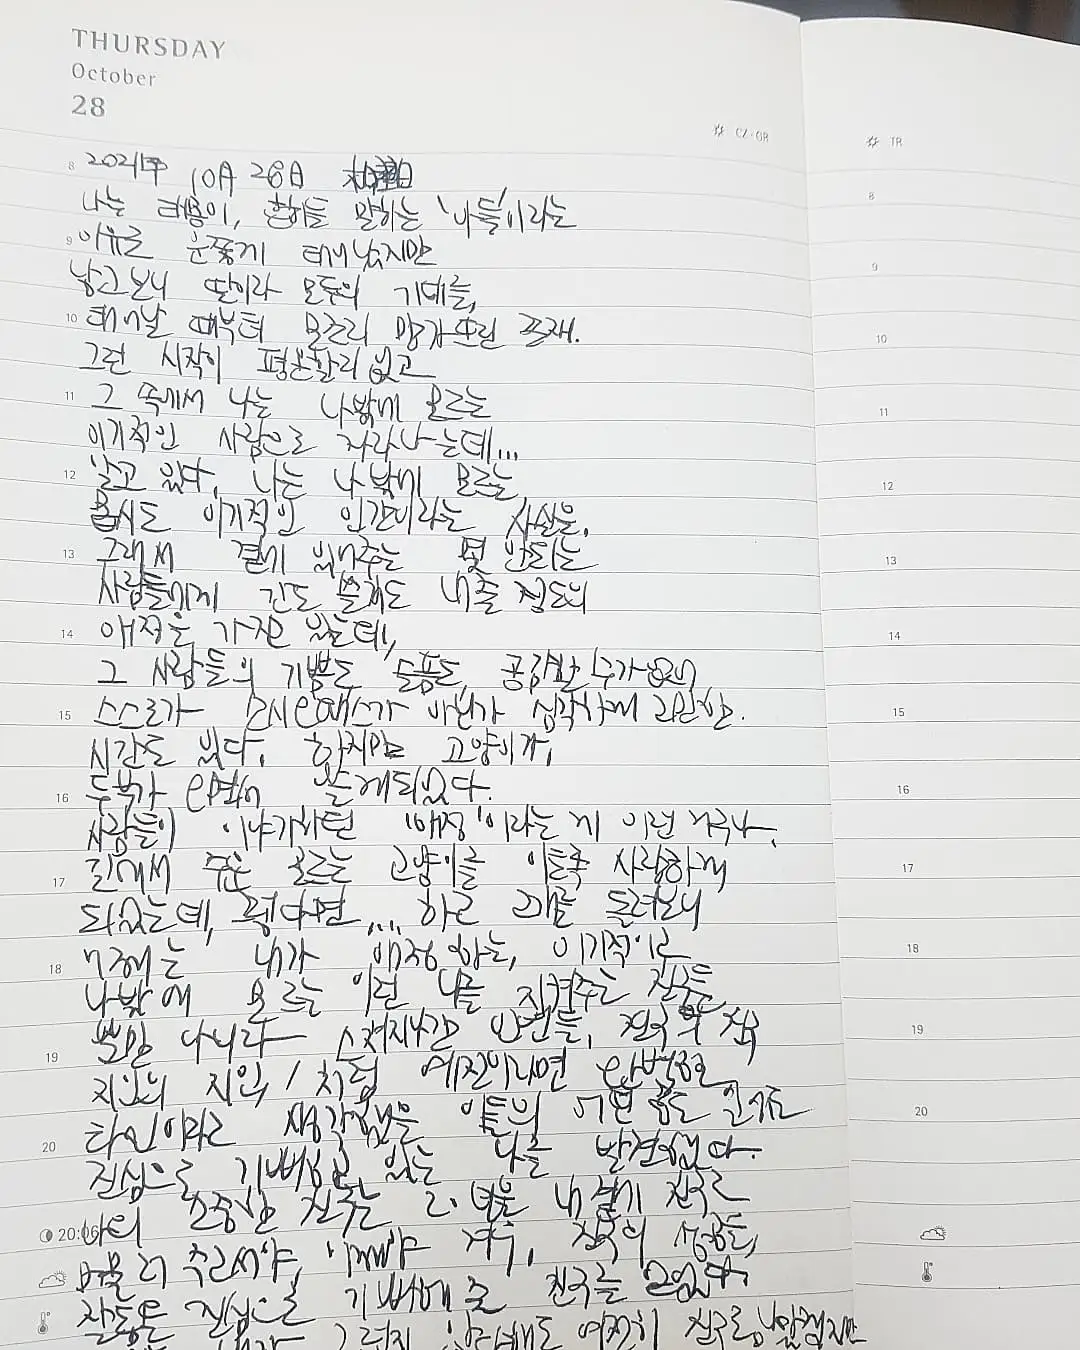 THURSDAY
October
28
CZ·GR
TR
8 2021年 10月 28日
나는 태몽이, 흔히들 말하는 '아들'이라는
9 이유로 운좋게 태어났지만
낳고보니 딸이라 모두의 기대를,
10 태어날 때부터 모조리 망가뜨린 존재.
그런 시작이 평온할리 없고
11 그 속에서 나는 나밖에 모르는
이기적인 사람으로 자라나는데...
12 알고 있다. 나는 나밖에 모르는
몹시도 이기적인 인간이라는 사실을.
13 그래서 곁에 있어주는 몇 안되는
사람들에게 간도 쓸개도 내줄 정도의
14 애정을 가지고 있는데,
그 사람들의 기쁨도 슬픔도 공감할 수가 없어
15 스스로가 소시오패스가 아닌가 심각하게 고민한
시간도 있다. 하지만 고양이가,
16 두부가 옆에 오게되었다.
사람들이 이야기하던 '애정'이라는 게 이런 거구나.
17 길에서 주운 모르는 고양이를 이토록 사랑하게
되었는데, 그렇다면... 하고 고개를 돌려보니
18 거기에는 내가 애정하는, 이기적이고
나밖에 모르는 이런 나를 지켜주는 친구들
19 뿐만 아니라 스쳐지나간 인연들, 친구의 친구
지인의 지인/처럼 예전이라면 완벽한
타인이라고 생각했을 이들의
20 진심으로 기뻐하고 있는 나를 발견했다.
소중한 친구는 내 곁에 친구로
20:06
친구의 성공을,
진심으로 기뻐해 줄 친구를
그런지 여전히
8
9
10
11
12
13
14
15
16
17
18
19
20